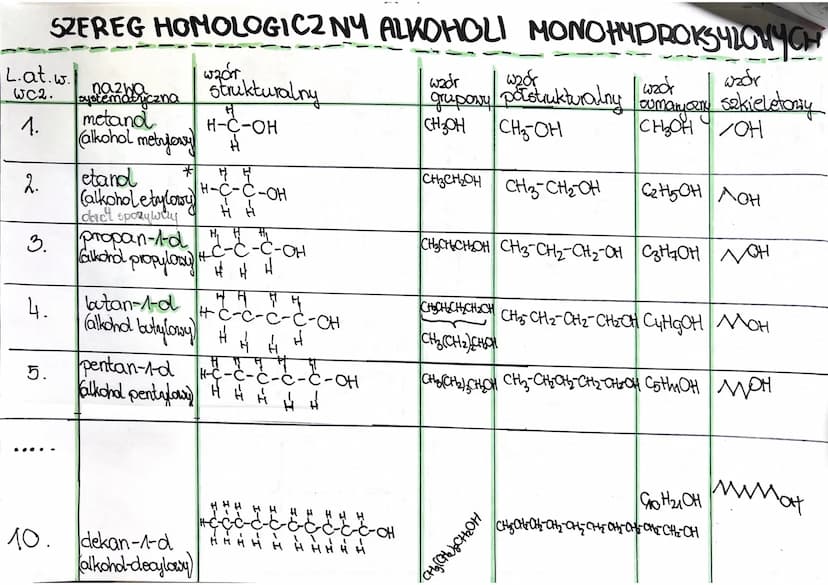 SZEREG HOMOLOGICZNY ALKOHOLI MONOHYDROKSYLOWYCH
L.at.w. wcz.
nazwa systematyczna
wzór strukturalny
wzór grupowy
wzór półstrukturalny
wzór sumaryczny
wzór szkieletowy
1.
metanol
(alkohol metylowy)
H
H-C-OH
H
CH3OH
CH3-OH
CH3OH
/OH
2.
etanol *
(alkohol etylowy)
H H
H-C-C-OH
H H
CH3CH2OH
CH3-CH2-OH
C2H5OH
OH
3.
propan-1-ol
(alkohol propylowy)
H H H
H-C-C-C-OH
H H H
CH3CH2CH2OH
CH3-CH2-CH2-OH
C3H7OH
OH
4.
butan-1-ol
(alkohol butylowy)
H H H H
H-C-C-C-C-OH
H H H H
CH3CH2CH2CH2OH
CH3(CH2)2CH2OH
CH3-CH2-CH2-CH2OH
C4H9OH
OH
5.
pentan-1-ol
(alkohol pentylowy)
H H H H H
H-C-C-C-C-C-OH
H H H H H
CH3(CH2)3CH2OH
CH3-CH2CH2-CH2-CH2OH
C5H11OH
OH
.....
10.
dekan-1-ol
(alkohol-decylowy)
H H H H H H H H H H
H-C-C-C-C-C-C-C-C-C-C-OH
H H H H H H H H H H
CH3(CH2)8CH2OH
C10H21OH
OH